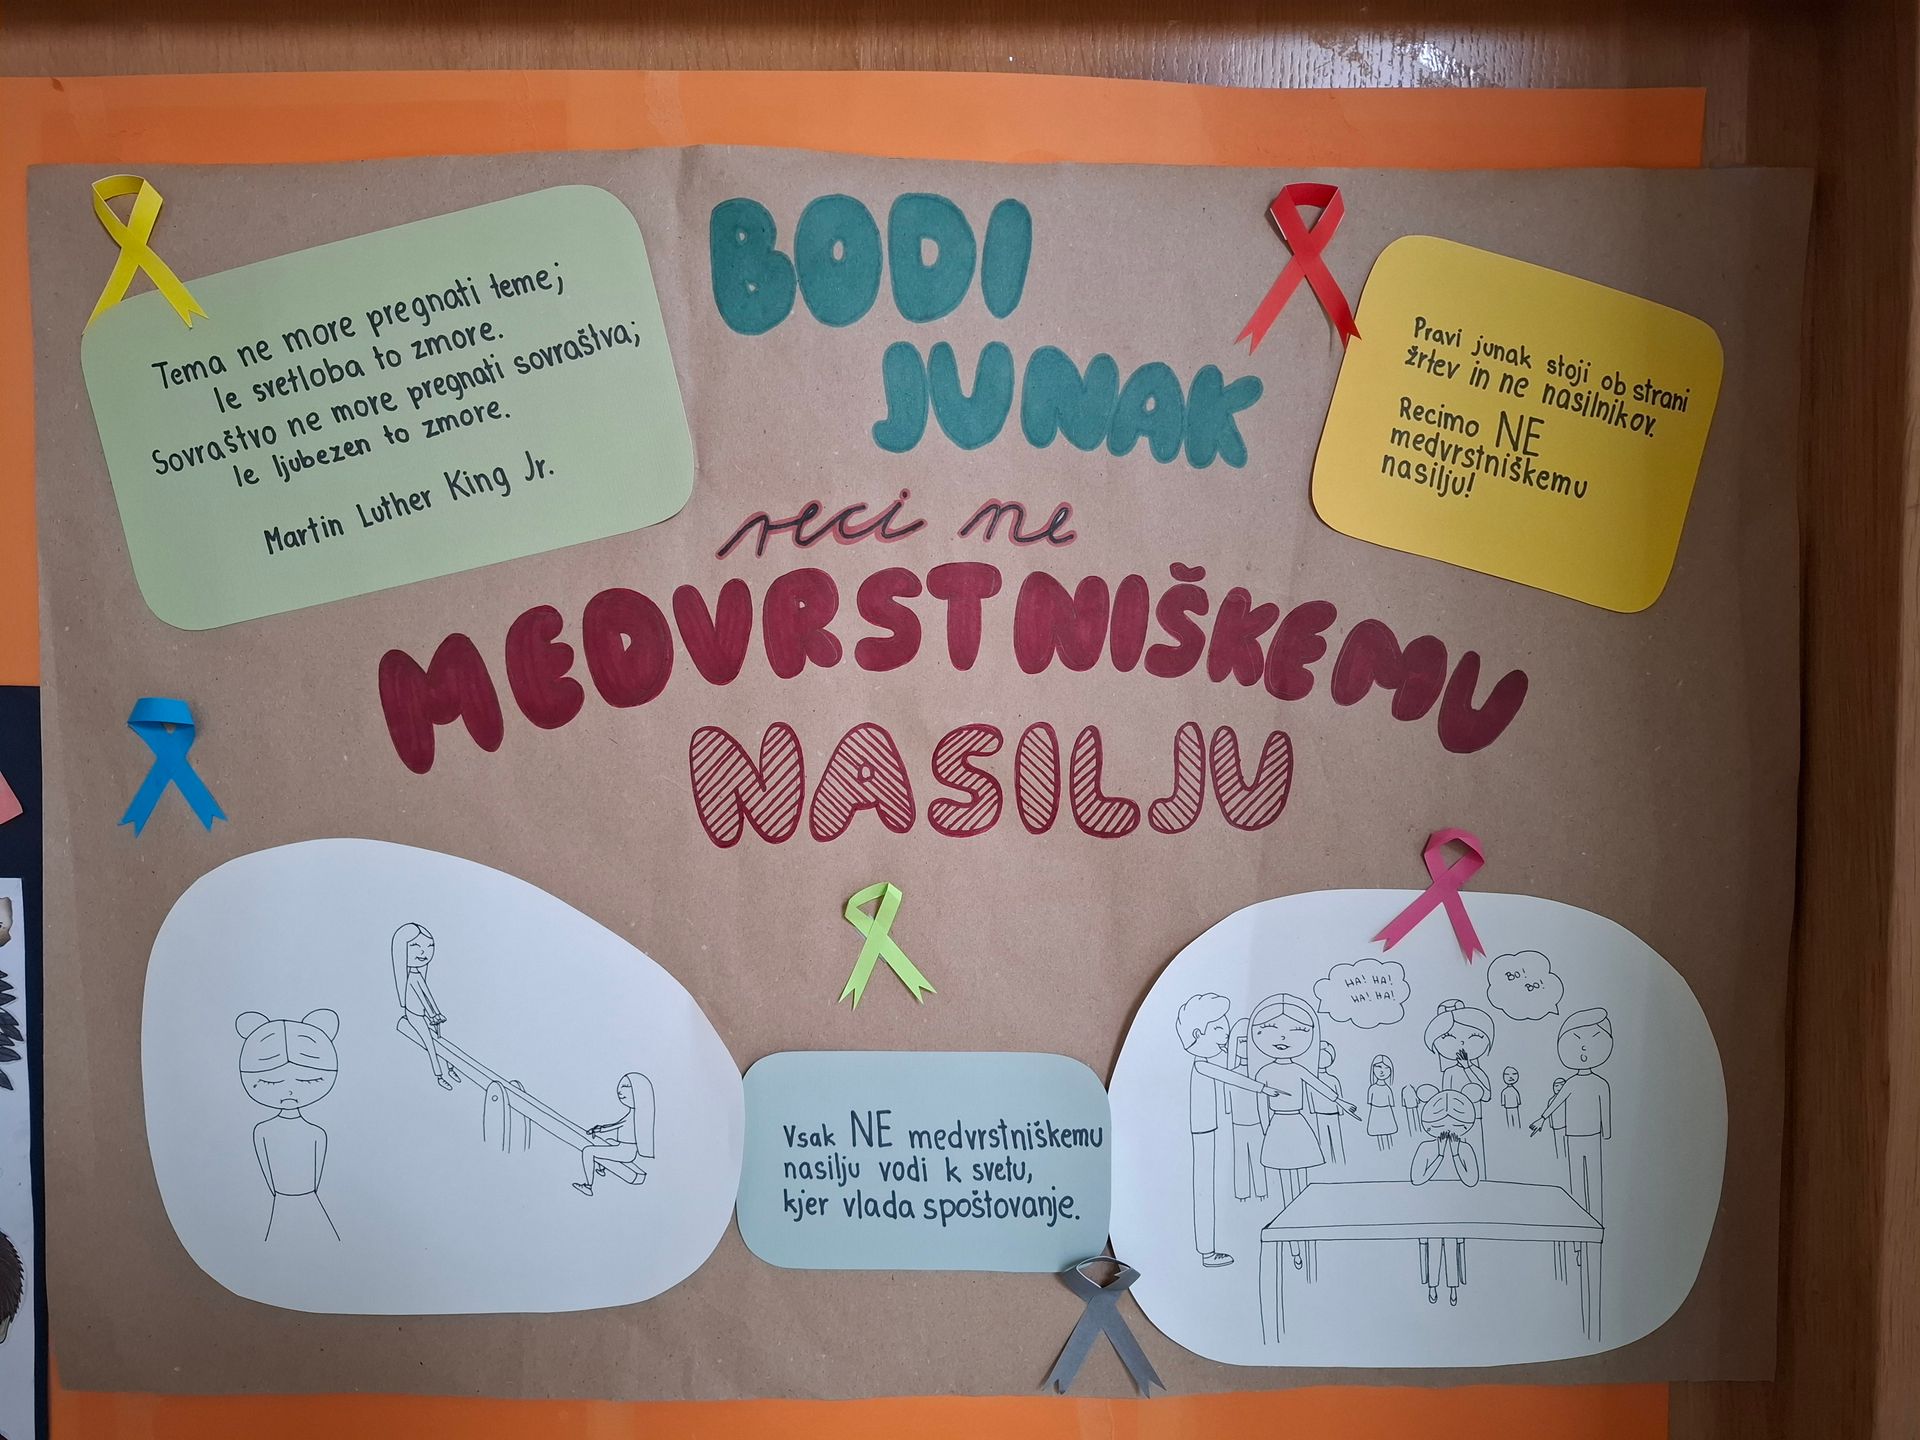 BODI
JUNAK
reci ne
MEDVRSTNIŠKEMU
NASILJU
Tema ne more pregnati teme;
le svetloba to zmore.
Sovraštvo ne more pregnati sovraštva;
le ljubezen to zmore.
Martin Luther King Jr.
Pravi junak stoji ob strani
žrtev in ne nasilnikov.
Recimo NE
medvrstniškemu
nasilju!
Vsak NE medvrstniškemu
nasilju vodi k svetu,
kjer vlada spoštovanje.
HA! HA!
HA! HA!
BO!
BO!